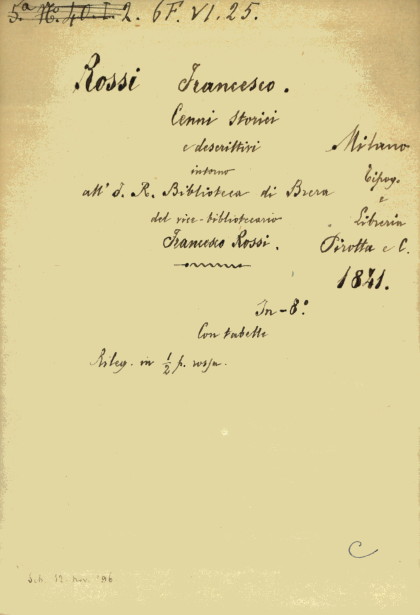 5.ª N.º 40. I. 2. 6F. VI. 25.
Rossi Francesco.
Cenni storici
e descrittivi
intorno
all' I. R. Biblioteca di Brera
del vice-bibliotecario
Francesco Rossi.
Milano
Tipog.
e
Libreria
Pirotta e C.
1841.
In-8.º
Con tabelle
Rileg. in 1/2 p. rossa.
Sch. 12 nov. '96
C